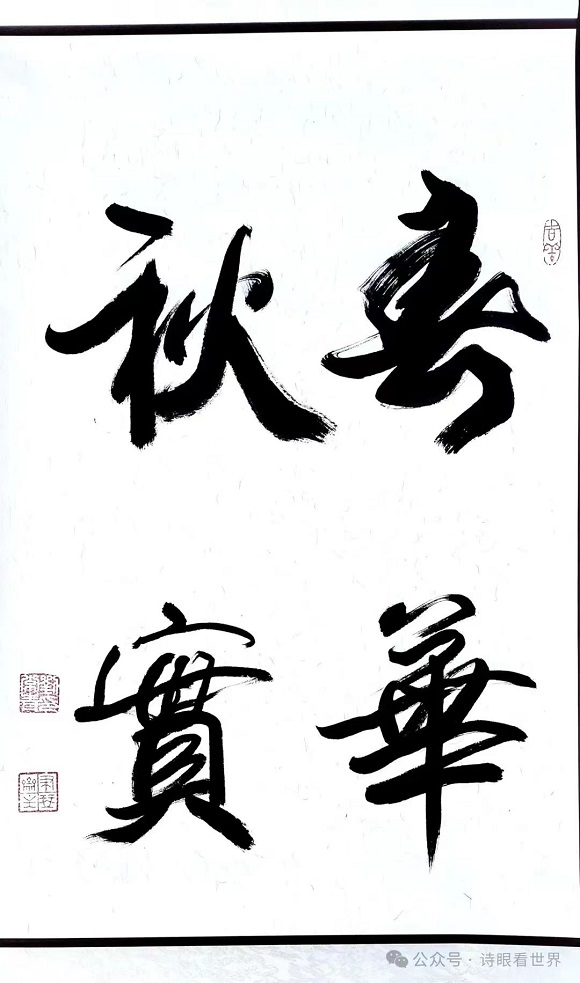 春華
秋實
公众号·诗眼看世界